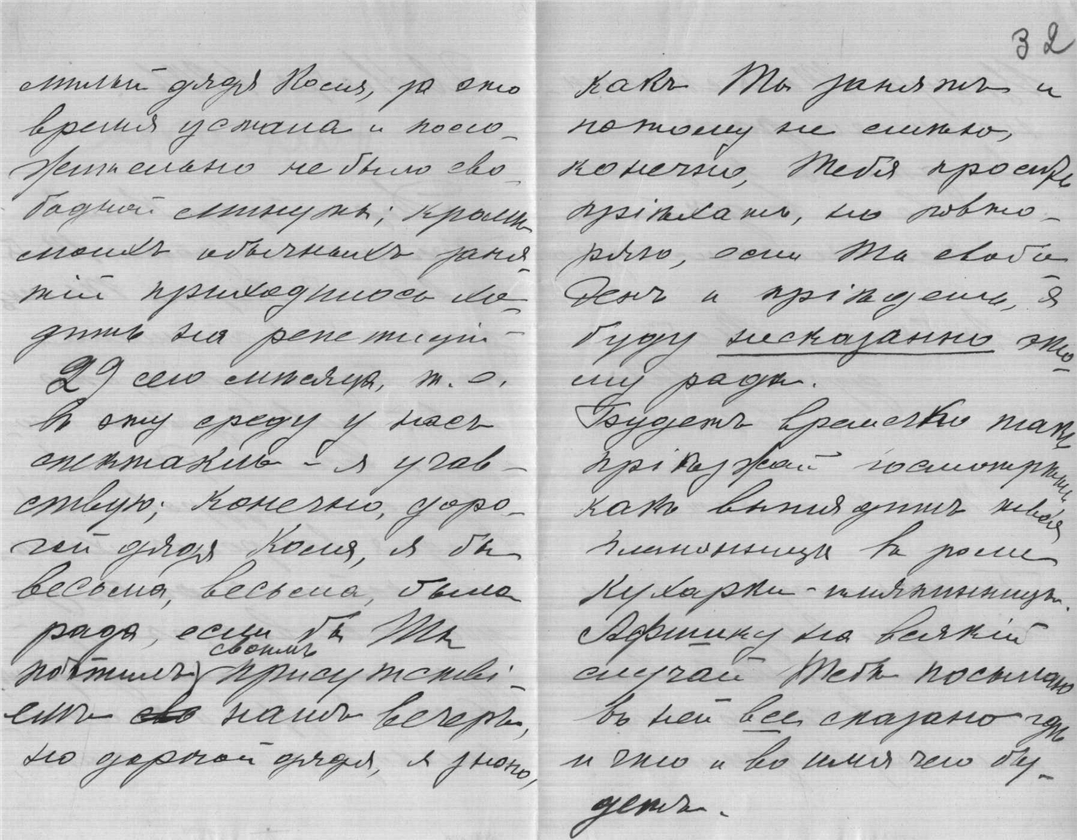 32
милый дядя Коля, за это
время устала и поло-
жительно не было сво-
бодной минуты; кромѣ
моихъ обычныхъ заня-
тій приходилось хо-
дить на репетиціи
29 сего мѣсяца, т.е.
въ эту среду у насъ
спектакль - я учав-
ствую; конечно, доро-
гой дядя Коля, я бы
весьма, весьма, была
рада, если бы Ты
посѣтилъ своимъ присутстві-
емъ нашъ вечеръ,
но дорогой дядя, я знаю,
какъ Ты занятъ и
потому не смѣю,
конечно, Тебя просить
пріѣхать, но повто-
ряю, если Ты свобо-
денъ и пріѣдешь, я
буду несказанно это-
му рада.
Будетъ времячко такъ
пріѣзжай посмотрѣть,
какъ выглядитъ твоя
племянница въ роли
кухарки-
Афишку на всякій
случай Тебѣ посылаю
въ ней все сказано гдѣ
и что и во имя чего бу-
детъ.